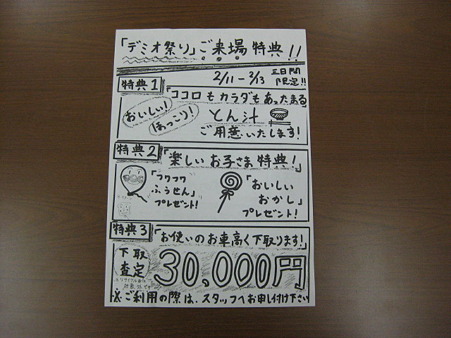 「デミオ祭り」ご来場特典!!
2/11-2/13 三日間限定!!
特典1
「ココロもカラダもあったまる
おいしい!
ほっこり!
とん汁
ご用意いたします!
特典2
「楽しいお子さま特典!」
「フワフワ
ふうせん」
プレゼント!
「おいしい
おかし」
プレゼント!
特典3
「お使いのお車高く下取ります!」
下取
査定
30,000円
※ご利用の際は、スタッフへお申し付け下さい